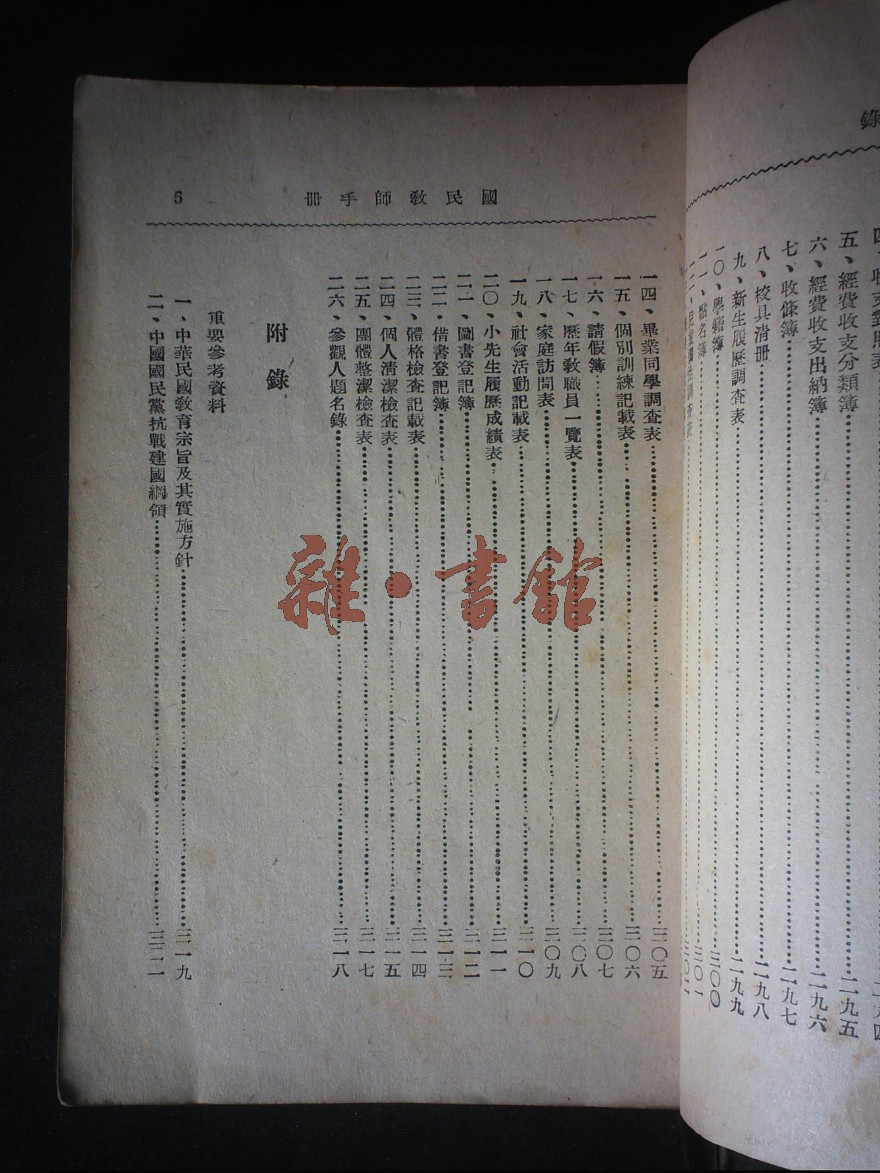 錄
四、收支對照表……二九四
五、經費收支分類簿……二九五
六、經費收支出納簿……二九六
七、收條簿……二九七
八、校具清冊……二九八
九、新生履歷調查表……二九九
一〇、學籍簿……三〇〇
一一、點名簿……三〇一
國民教師手冊
5
一四、畢業同學調查表……三〇五
一五、個別訓練記載表……三〇六
一六、請假簿……三〇七
一七、歷年教職員一覽表……三〇八
一八、家庭訪問表……三〇九
一九、社會活動記載表……三一〇
二〇、小先生履歷成績表……三一一
二一、圖書登記簿……三一二
二二、借書登記簿……三一三
二三、體格檢查記載表……三一四
二四、個人清潔檢查表……三一五
二五、團體整潔檢查表……三一七
二六、參觀人題名錄……三一八
附錄
重要參考資料
一、中華民國教育宗旨及其實施方針……三一九
二、中國國民黨抗戰建國綱領……三二一
雜·書館